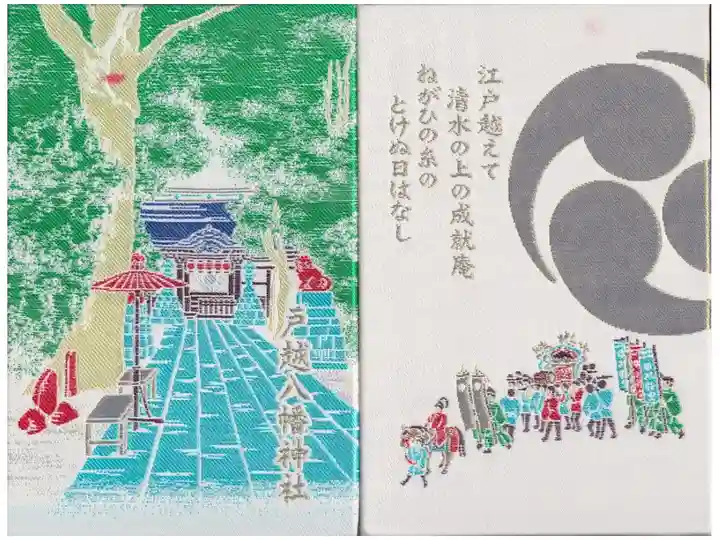 戸越八幡神社
江戸越えて
清水の上の成就庵
ねがひの糸の
とけぬ日はなし